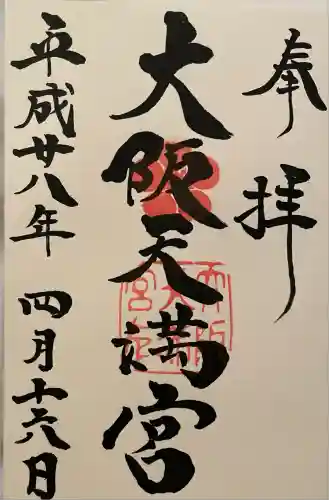 奉拝
大阪天満宮
平成廿八年 四月十六日